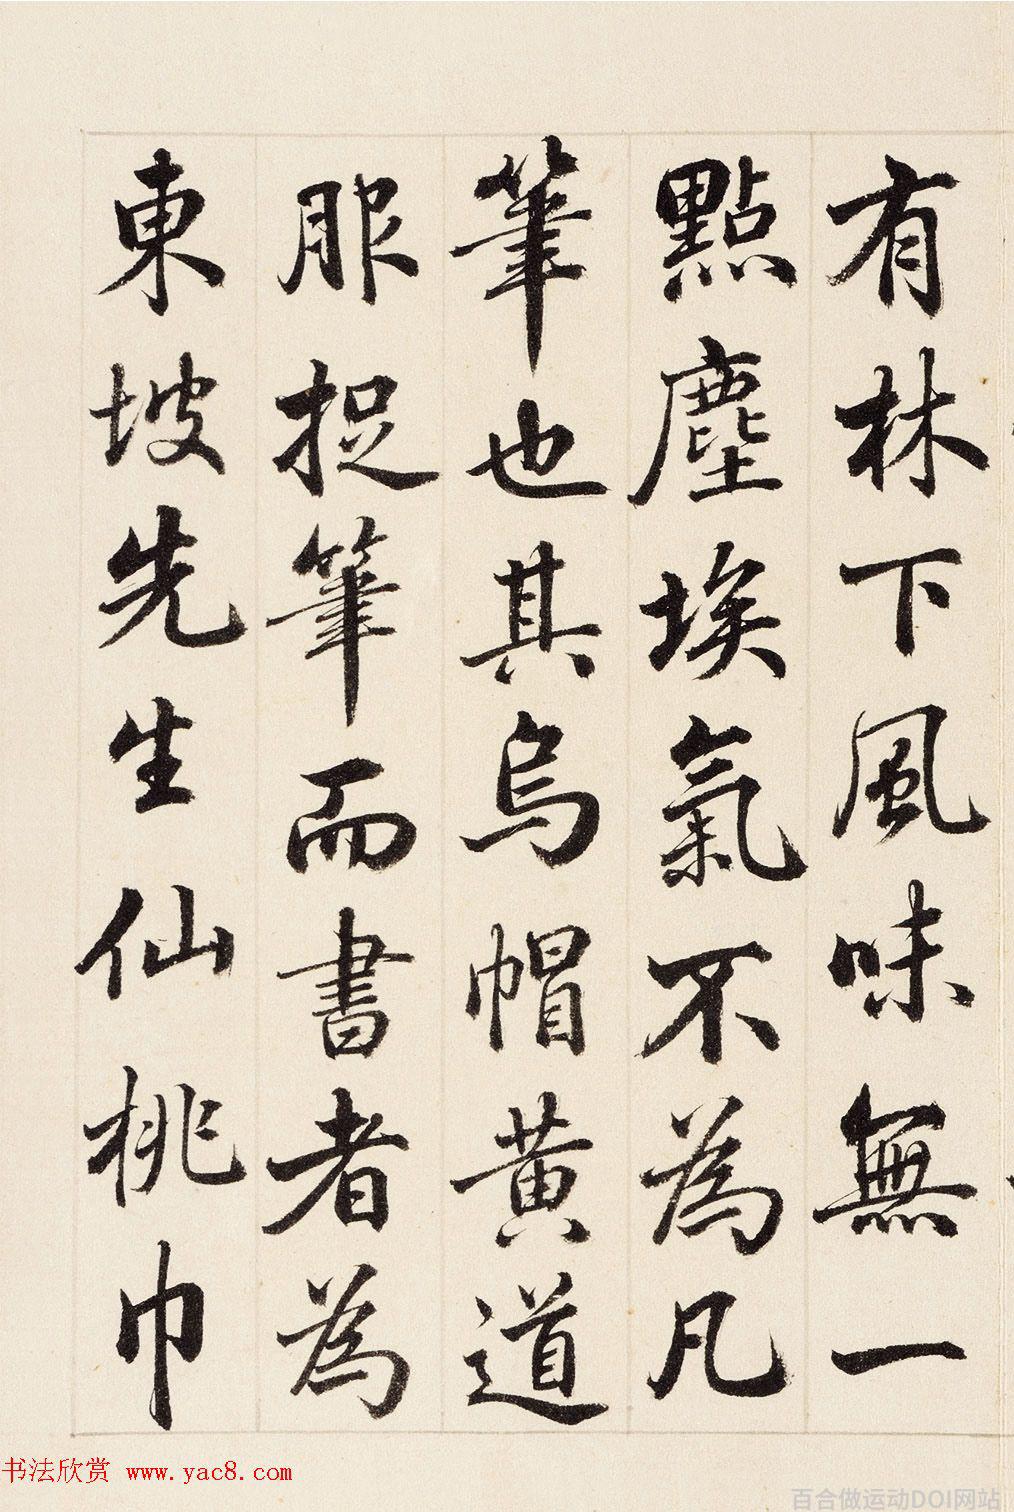 有林下風味無一
點塵埃氣不為凡
筆也其烏帽黃道
服捉筆而書者為
東坡先生仙桃巾
书法欣赏 www.yac8.com
百合做运动DOI网站